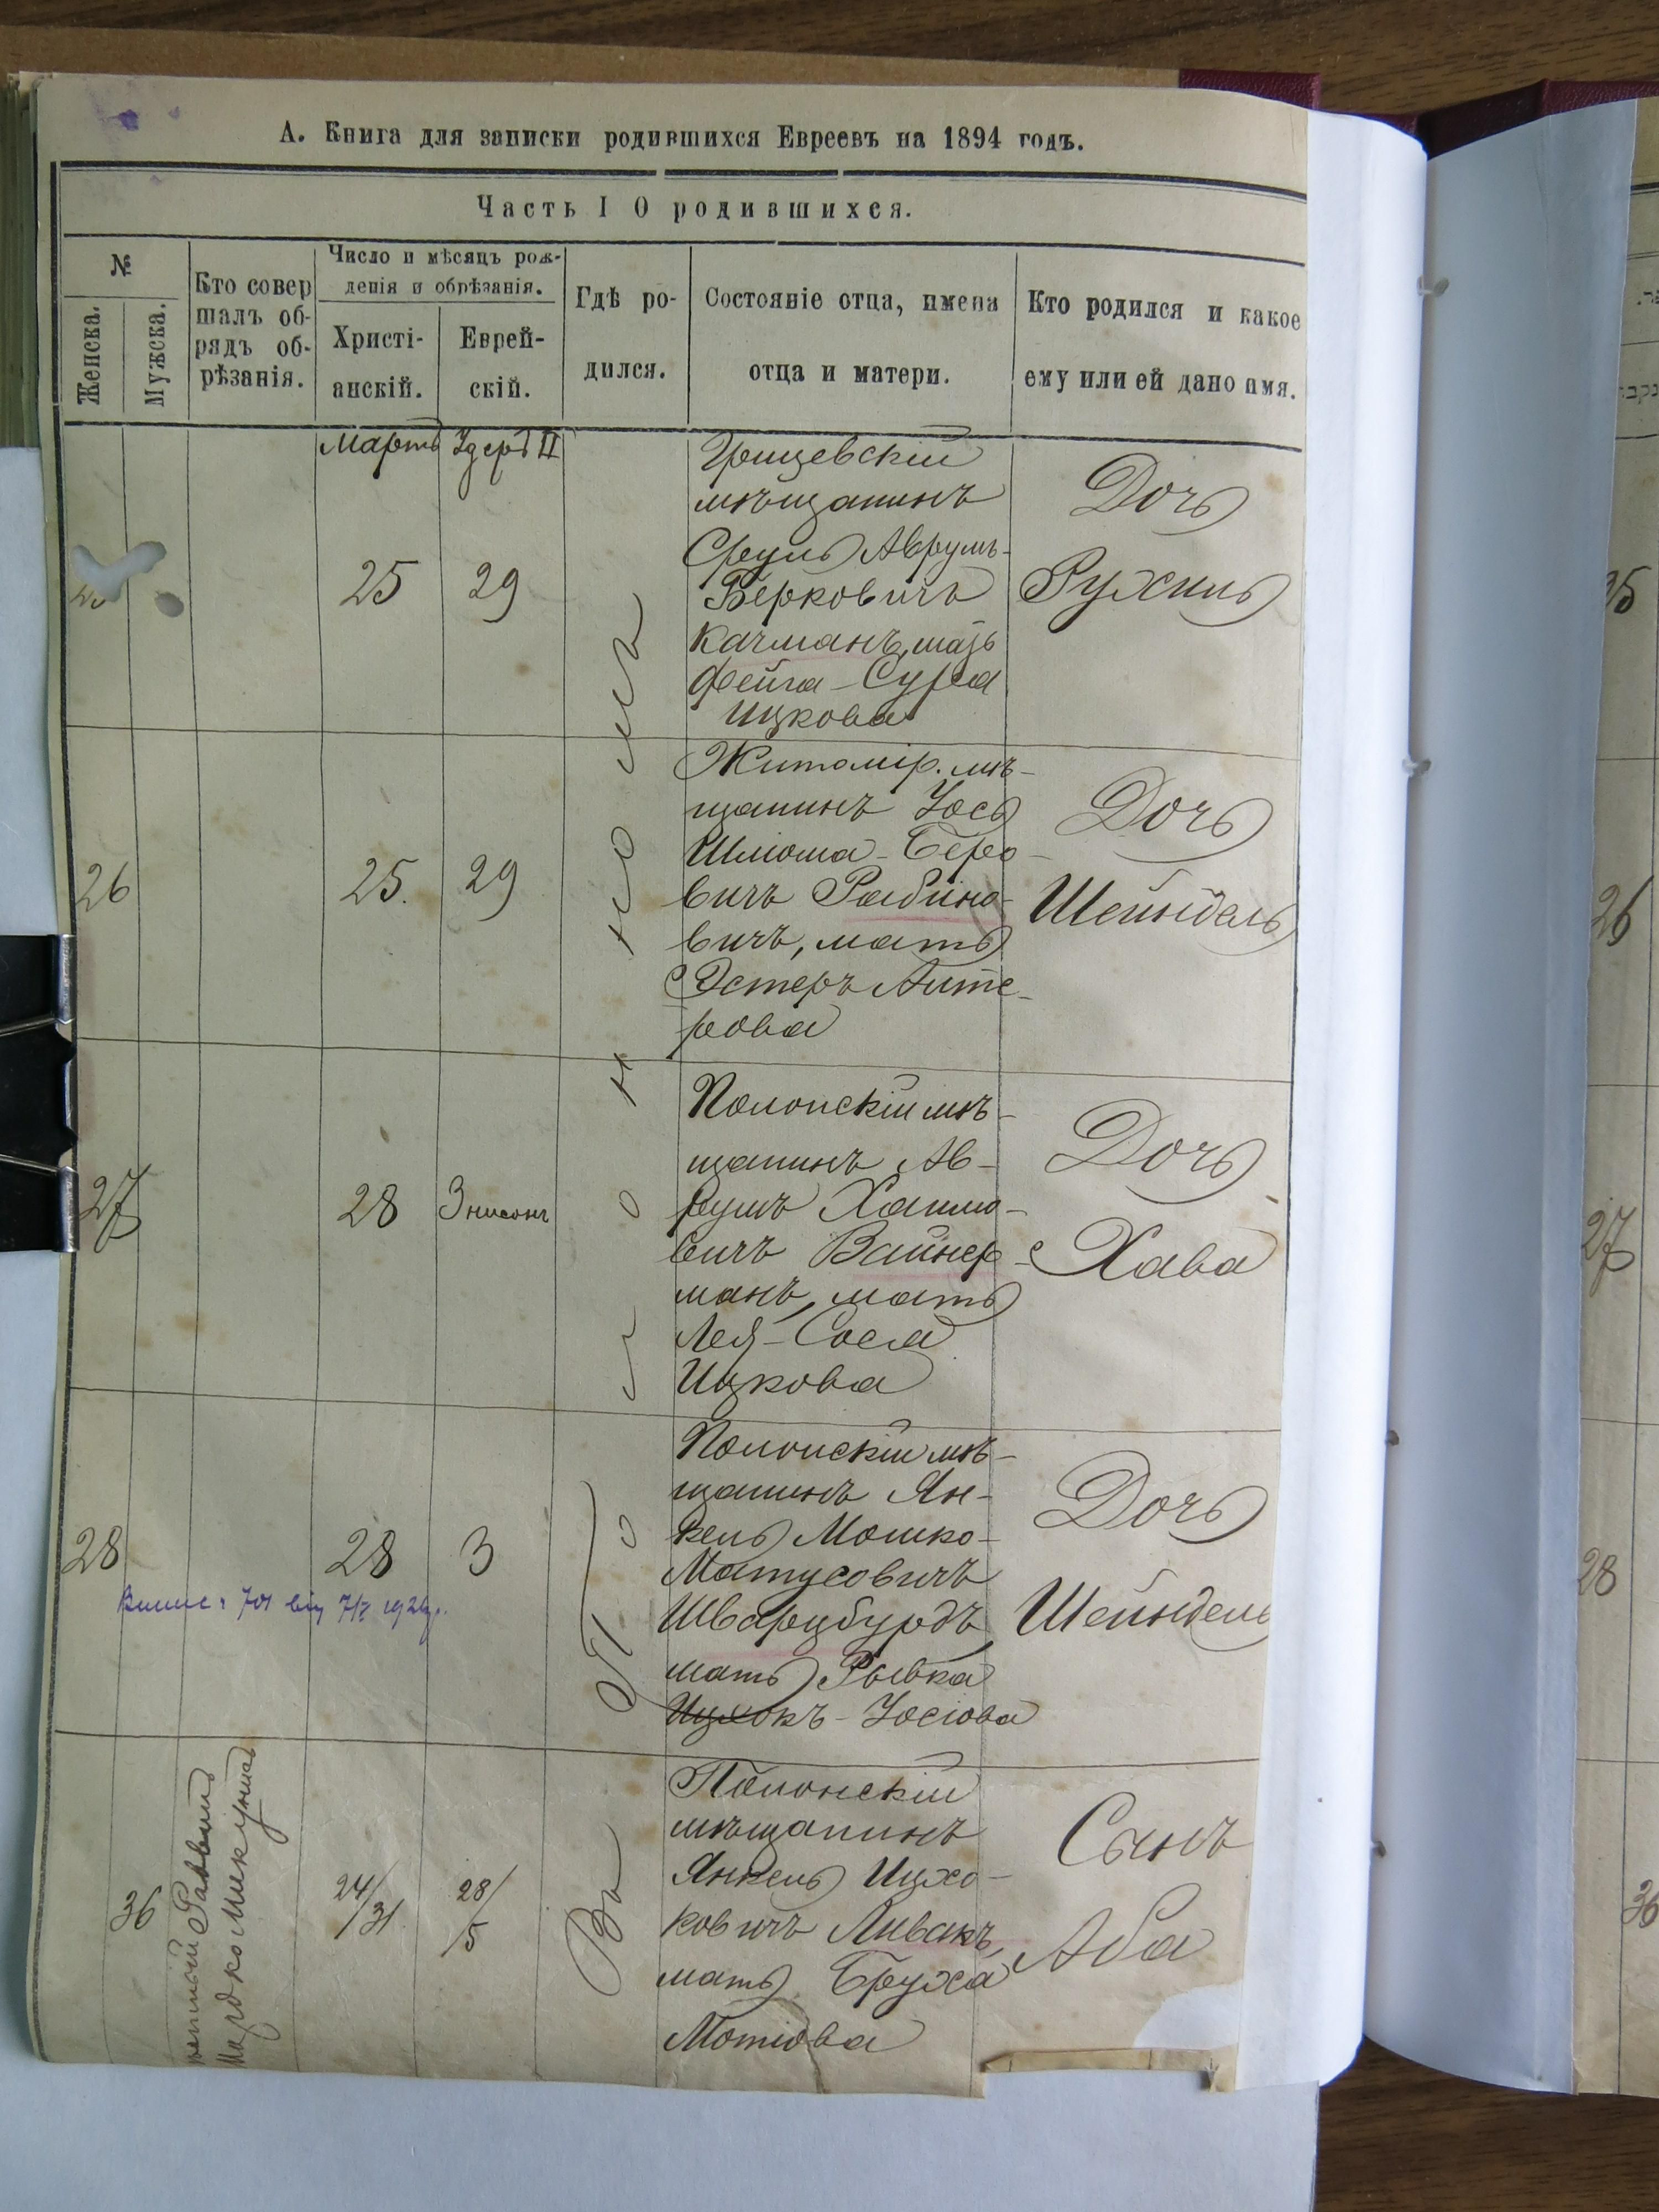 А. Книга для записки родившихся Евреевъ на 1894 годъ.
Часть I О родившихся.
№
Женска.
Мужска.
Кто совер
шалъ об-
рядъ об-
рѣзанія.
Число и мѣсяцъ рож-
денія и обрѣзанія.
Христі-
анскій.
Еврей-
скій.
Гдѣ ро-
дился.
Состояніе отца, имена
отца и матери.
Кто родился и какое
ему или ей дано имя.
Мартъ
Адеръ II
25
29
Грицевскій
мѣщанинъ
Сруль Аврумъ-
Берковичъ
Качманъ, мать
Фейга-Сура
Ицкова
Дочь
Рухиль
26
25.
29
Житомір. мѣ-
щанинъ Іось
Шлиома-Беро-
вичъ Рабино-
вичъ, мать
Эстеръ Алте-
рова
Дочь
Шейндель
27
28
3 нисонъ
Полонскій мѣ-
щанинъ Ав-
румъ Хаимо-
вичъ Вайнер-
манъ, мать
Лея-Сося
Ицкова
Дочь
Хава
28
28
3
Полонскій мѣ-
щанинъ Ян-
кель Мошко-
Матусовичъ
Шварцбурдъ
мать Рывка
Ицхокъ-Іосіова
Дочь
Шейндель
36
Раввинъ
Мордко Микунисъ
24/31
28/5
Въ
Полонскій
мѣщанинъ
Янкель Ицхо-
ковичъ Ливакъ,
мать Бруха
Мотіова
Сынъ
Аба
26
27
28
36